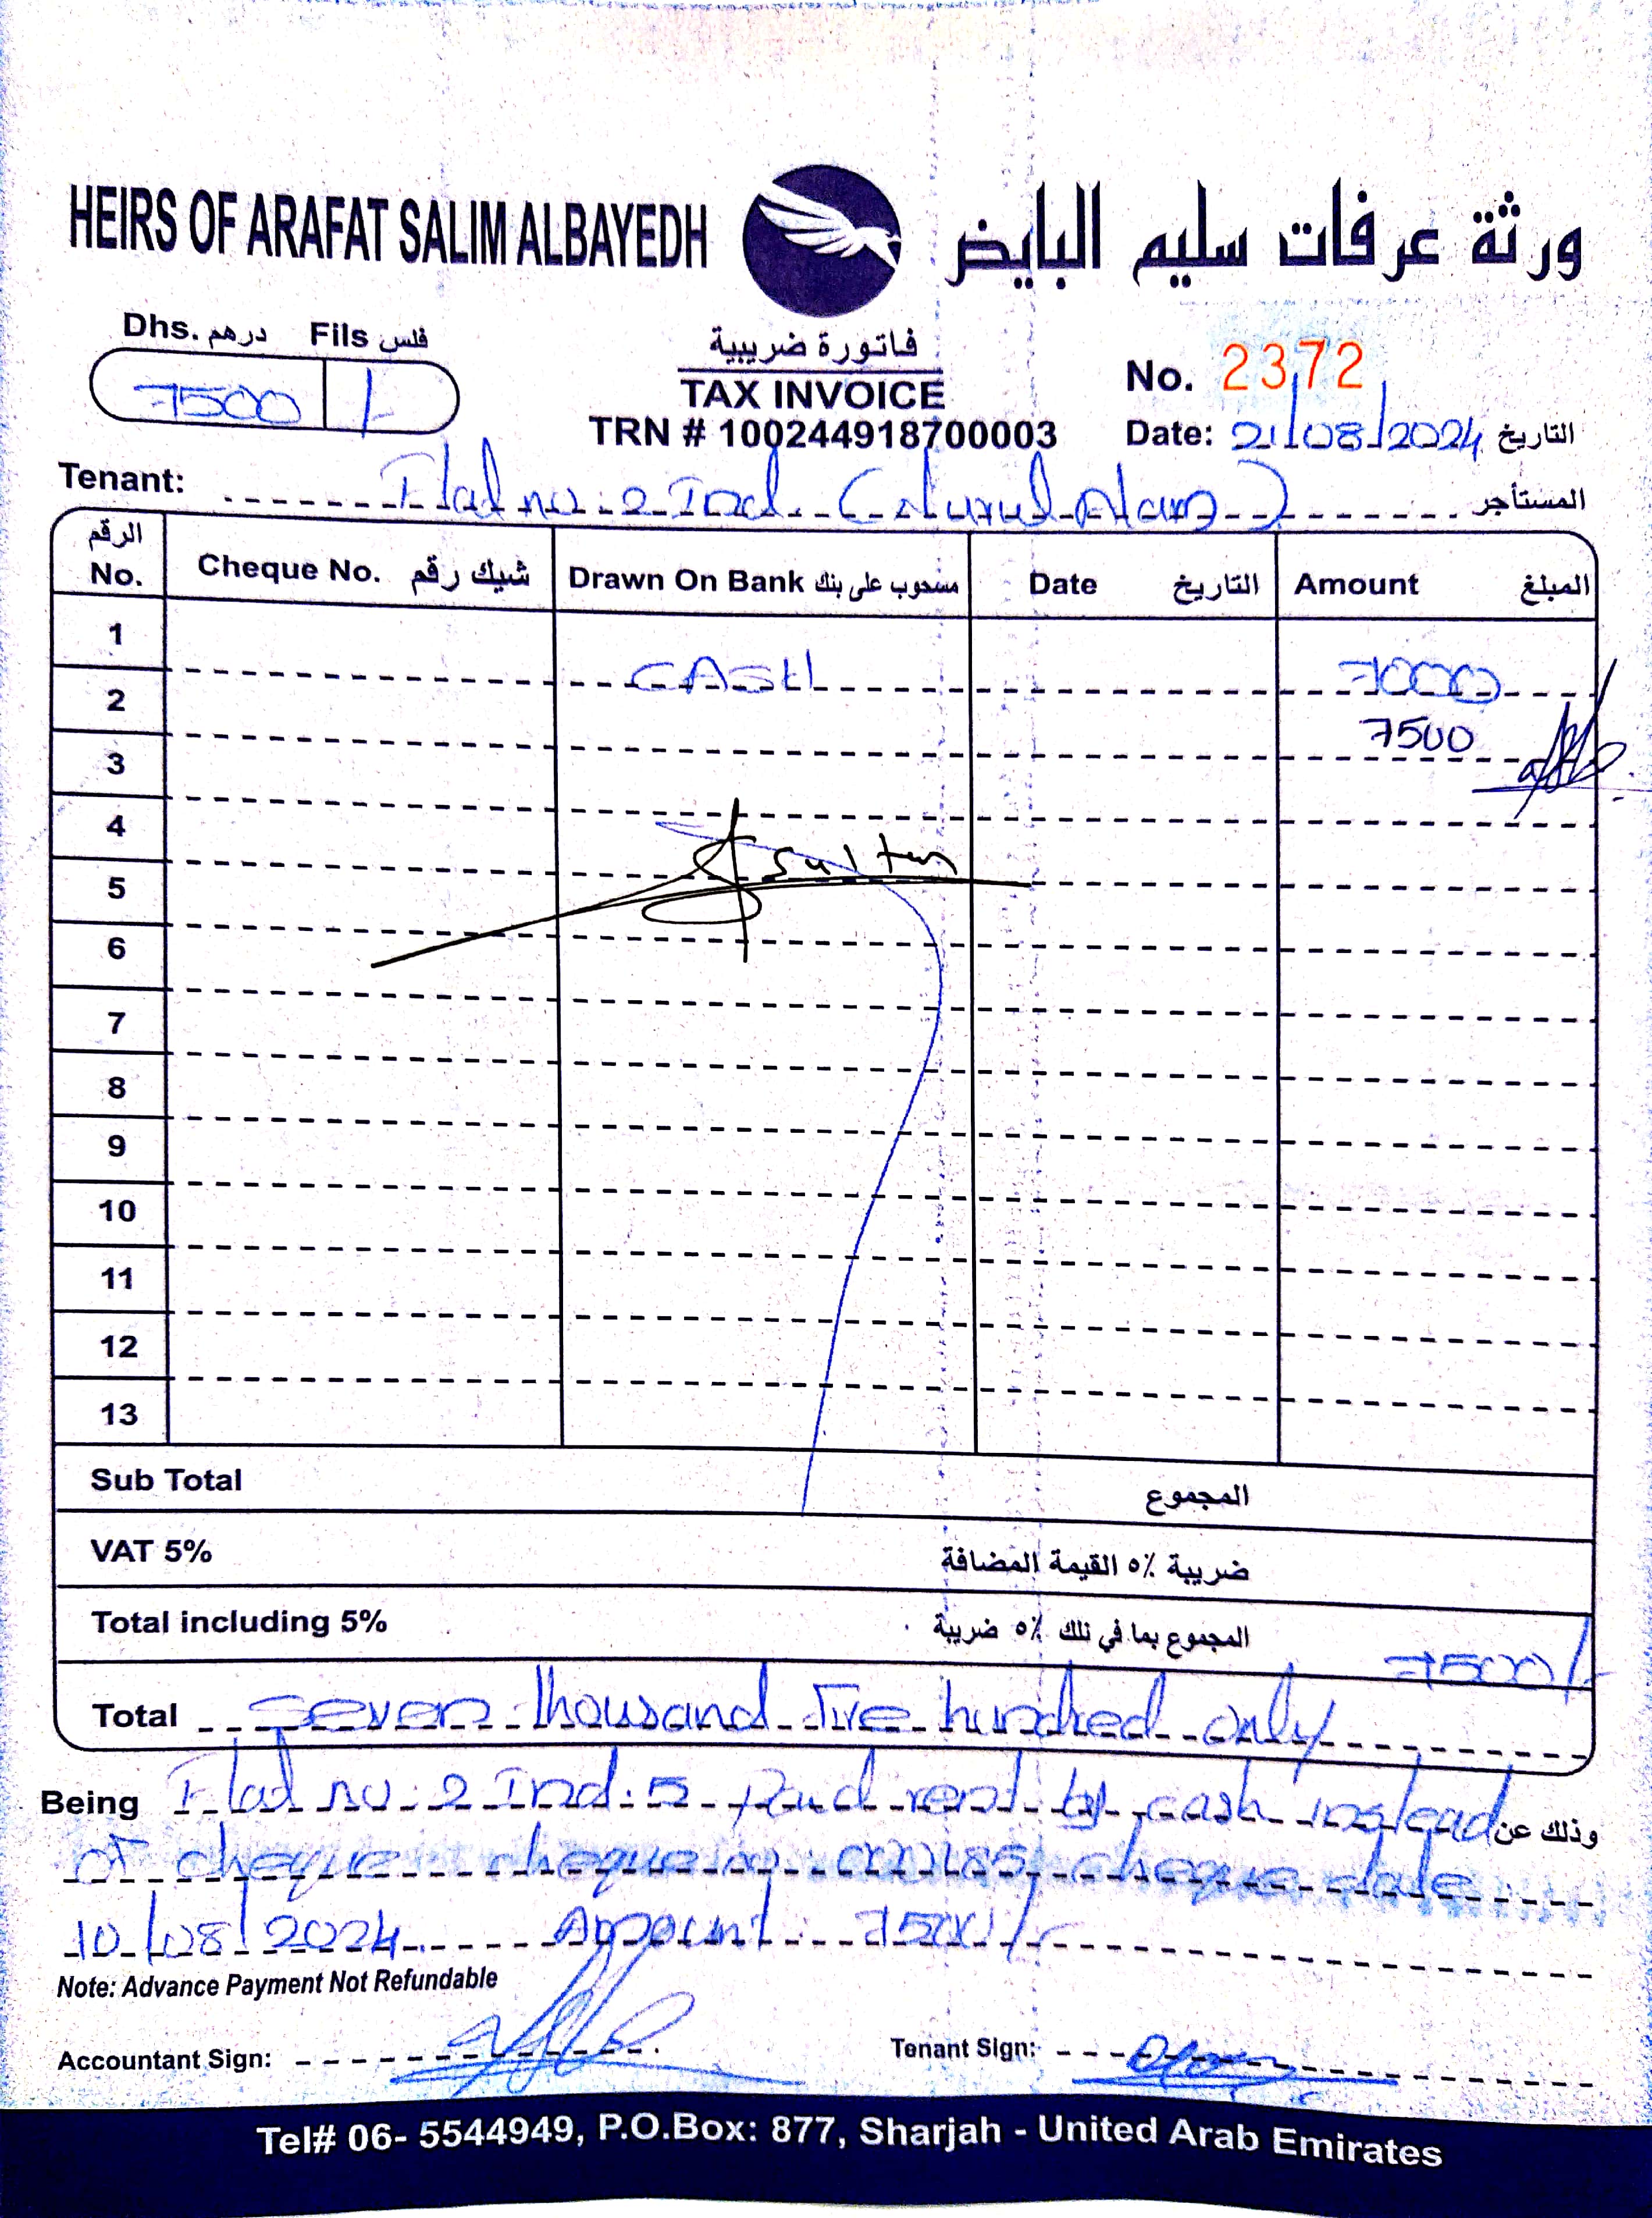 HEIRS OF ARAFAT SALIM ALBAYEDH ورثة عرفات سليم البايض
Dhs. درهم Fils فلس
7500 /-
فاتورة ضريبية
TAX INVOICE
TRN # 100244918700003
No. 2372
Date: 21/08/2024 التاريخ
Tenant: Flat no: 2 Ind. (Nurul Alam) المستأجر
الرقم No. Cheque No. شيك رقم Drawn On Bank مسحوب على بنك Date التاريخ Amount المبلغ
1 CASH 7000
2 7500
3
4 Sultan
5
6
7
8
9
10
11
12
13
Sub Total المجموع
VAT 5% ضريبة ٥٪ القيمة المضافة
Total including 5% المجموع بما في ذلك ٥٪ ضريبة 7500/-
Total Seven thousand Five hundred only
Being Flat no. 2 Ind: 5 paid rent by cash instead وذلك عن
of cheque cheque no: cheque date
10/08/2024 Amount: 7500/-
Note: Advance Payment Not Refundable
Accountant Sign: Tenant Sign:
Tel# 06- 5544949, P.O.Box: 877, Sharjah - United Arab Emirates